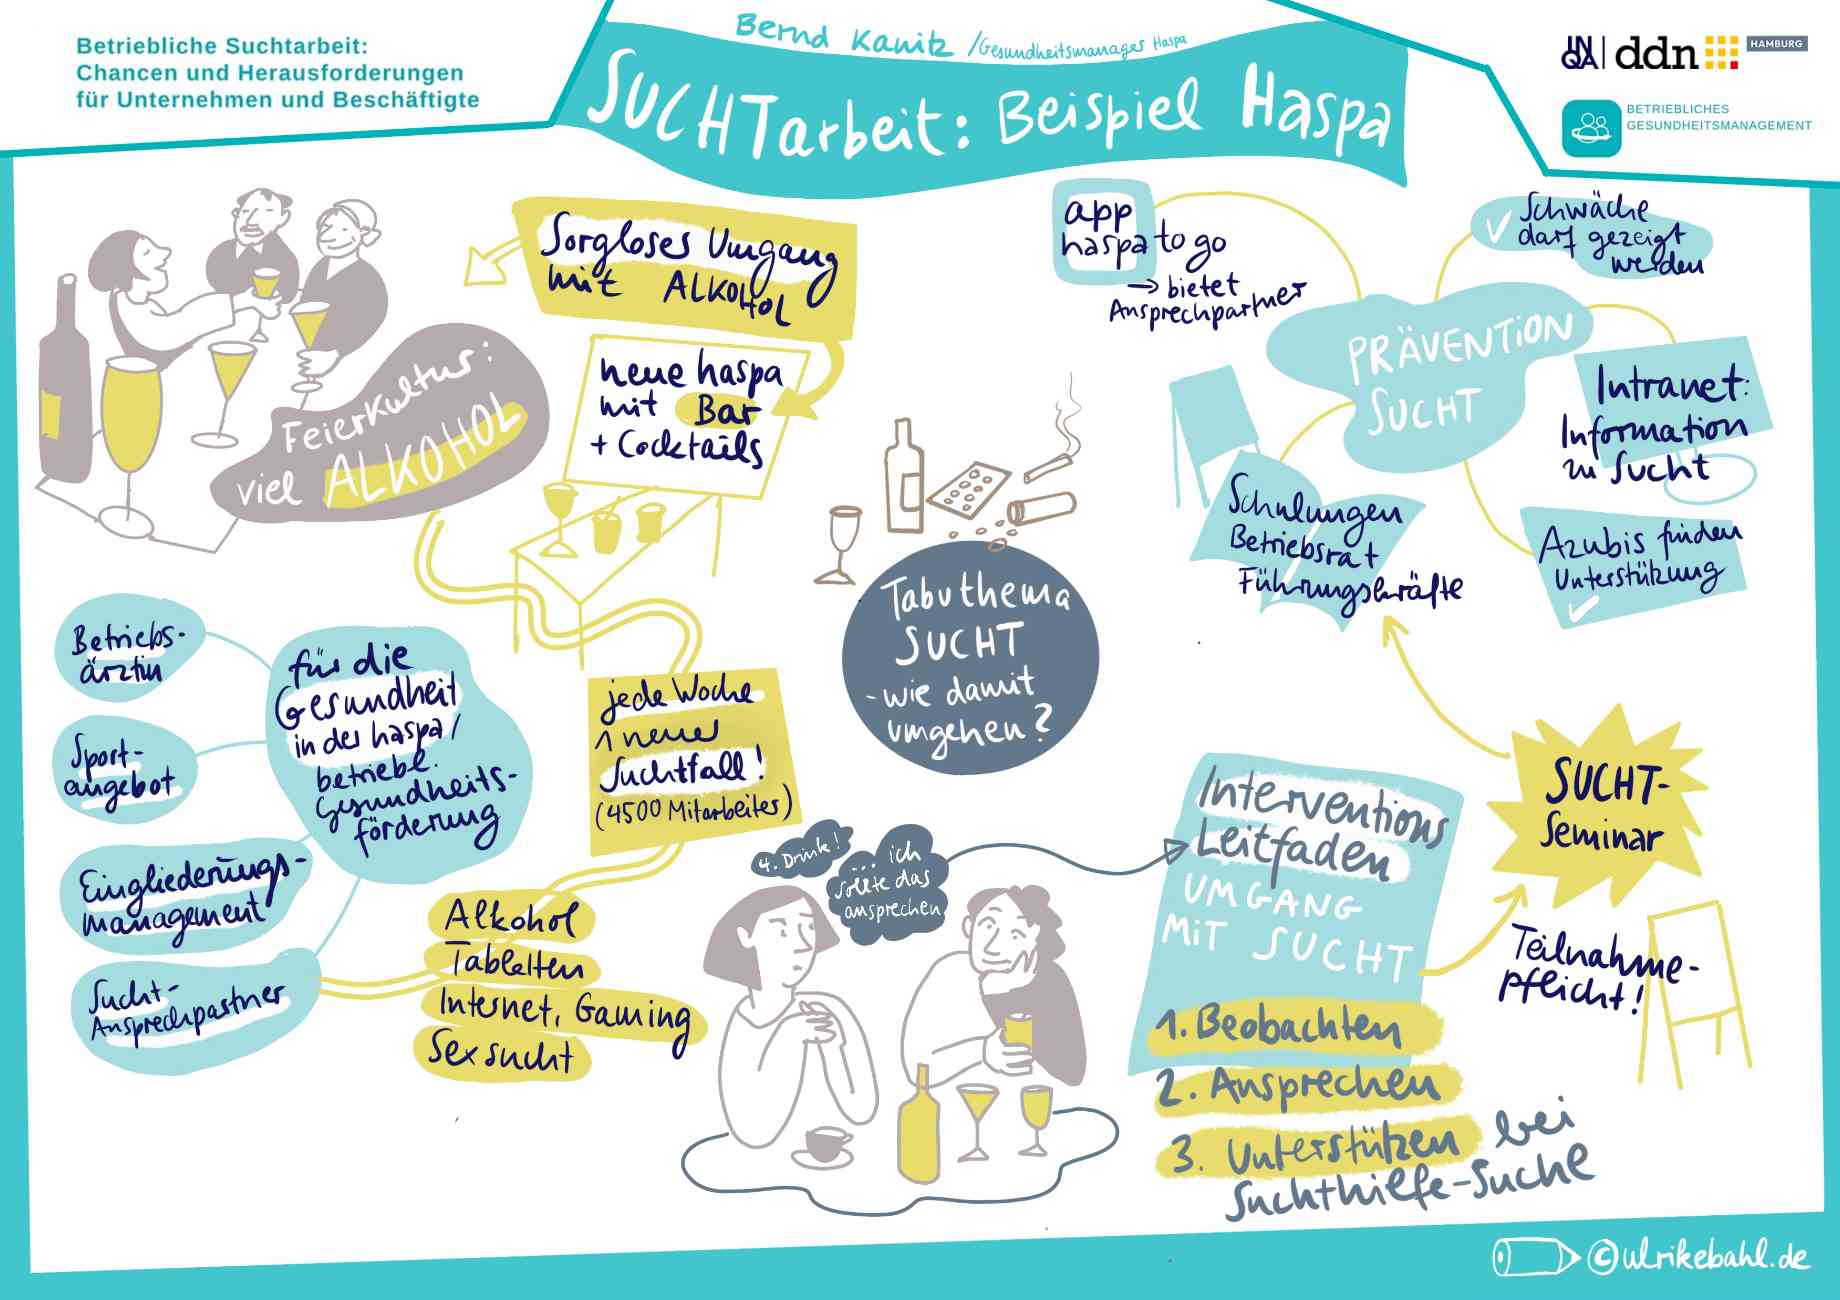 Betriebliche Suchtarbeit:
Chancen und Herausforderungen
für Unternehmen und Beschäftigte
Bernd Kanitz /Gesundheitsmanager Haspa
SUCHTarbeit: Beispiel Haspa
INQA
ddn
HAMBURG
BETRIEBLICHES
GESUNDHEITSMANAGEMENT
Sorgloses Umgang
mit ALKOHOL
Feierkultur:
viel ALKOHOL
neue haspa
mit Bar
+ Cocktails
app
haspa to go
→ bietet
Ansprechpartner
Schwäche
darf gezeigt
werden
PRÄVENTION
SUCHT
Intranet:
Information
zu Sucht
Schulungen
Betriebsrat
Führungskräfte
Azubis finden
Unterstützung
Tabuthema
SUCHT
- wie damit
umgehen?
Betriebs-
ärztin
Sport-
angebot
Eingliederungs-
management
Sucht-
Ansprechpartner
für die
Gesundheit
in der haspa/
betriebl.
Gesundheits-
förderung
jede Woche
1 neuer
Suchtfall!
(4500 Mitarbeiter)
Alkohol
Tabletten
Internet, Gaming
Sexsucht
4. Drink!
... ich
sollte das
ansprechen
Interventions
Leitfaden
UMGANG
MiT SUCHT
1. Beobachten
2. Ansprechen
3. Unterstützen bei
Suchthilfe-Suche
SUCHT-
Seminar
Teilnahme-
pflicht!
©ulrikebahl.de